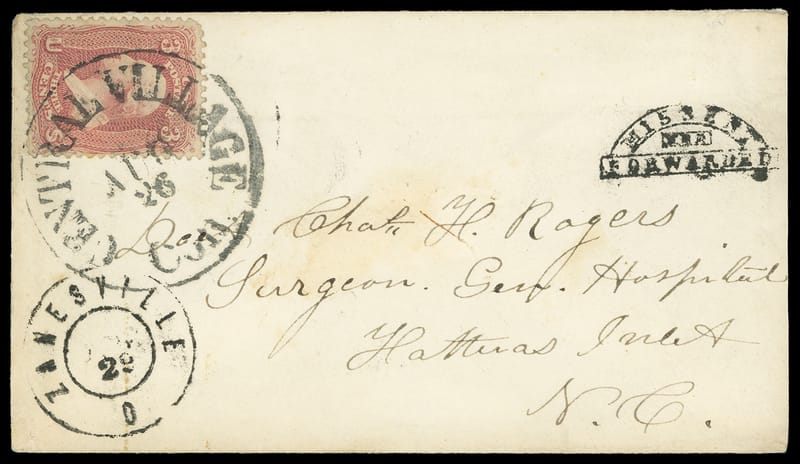 U 3
CENTS POSTAGE
U S 3
CENTRAL VILLAGE
AUG
26
CON.
MISSENT
AND
FORWARDED
Doct. Chas. H. Rogers
Surgeon. Gen. Hospital
Hatteras Inlet
N.C.
ZANESVILLE
29
O